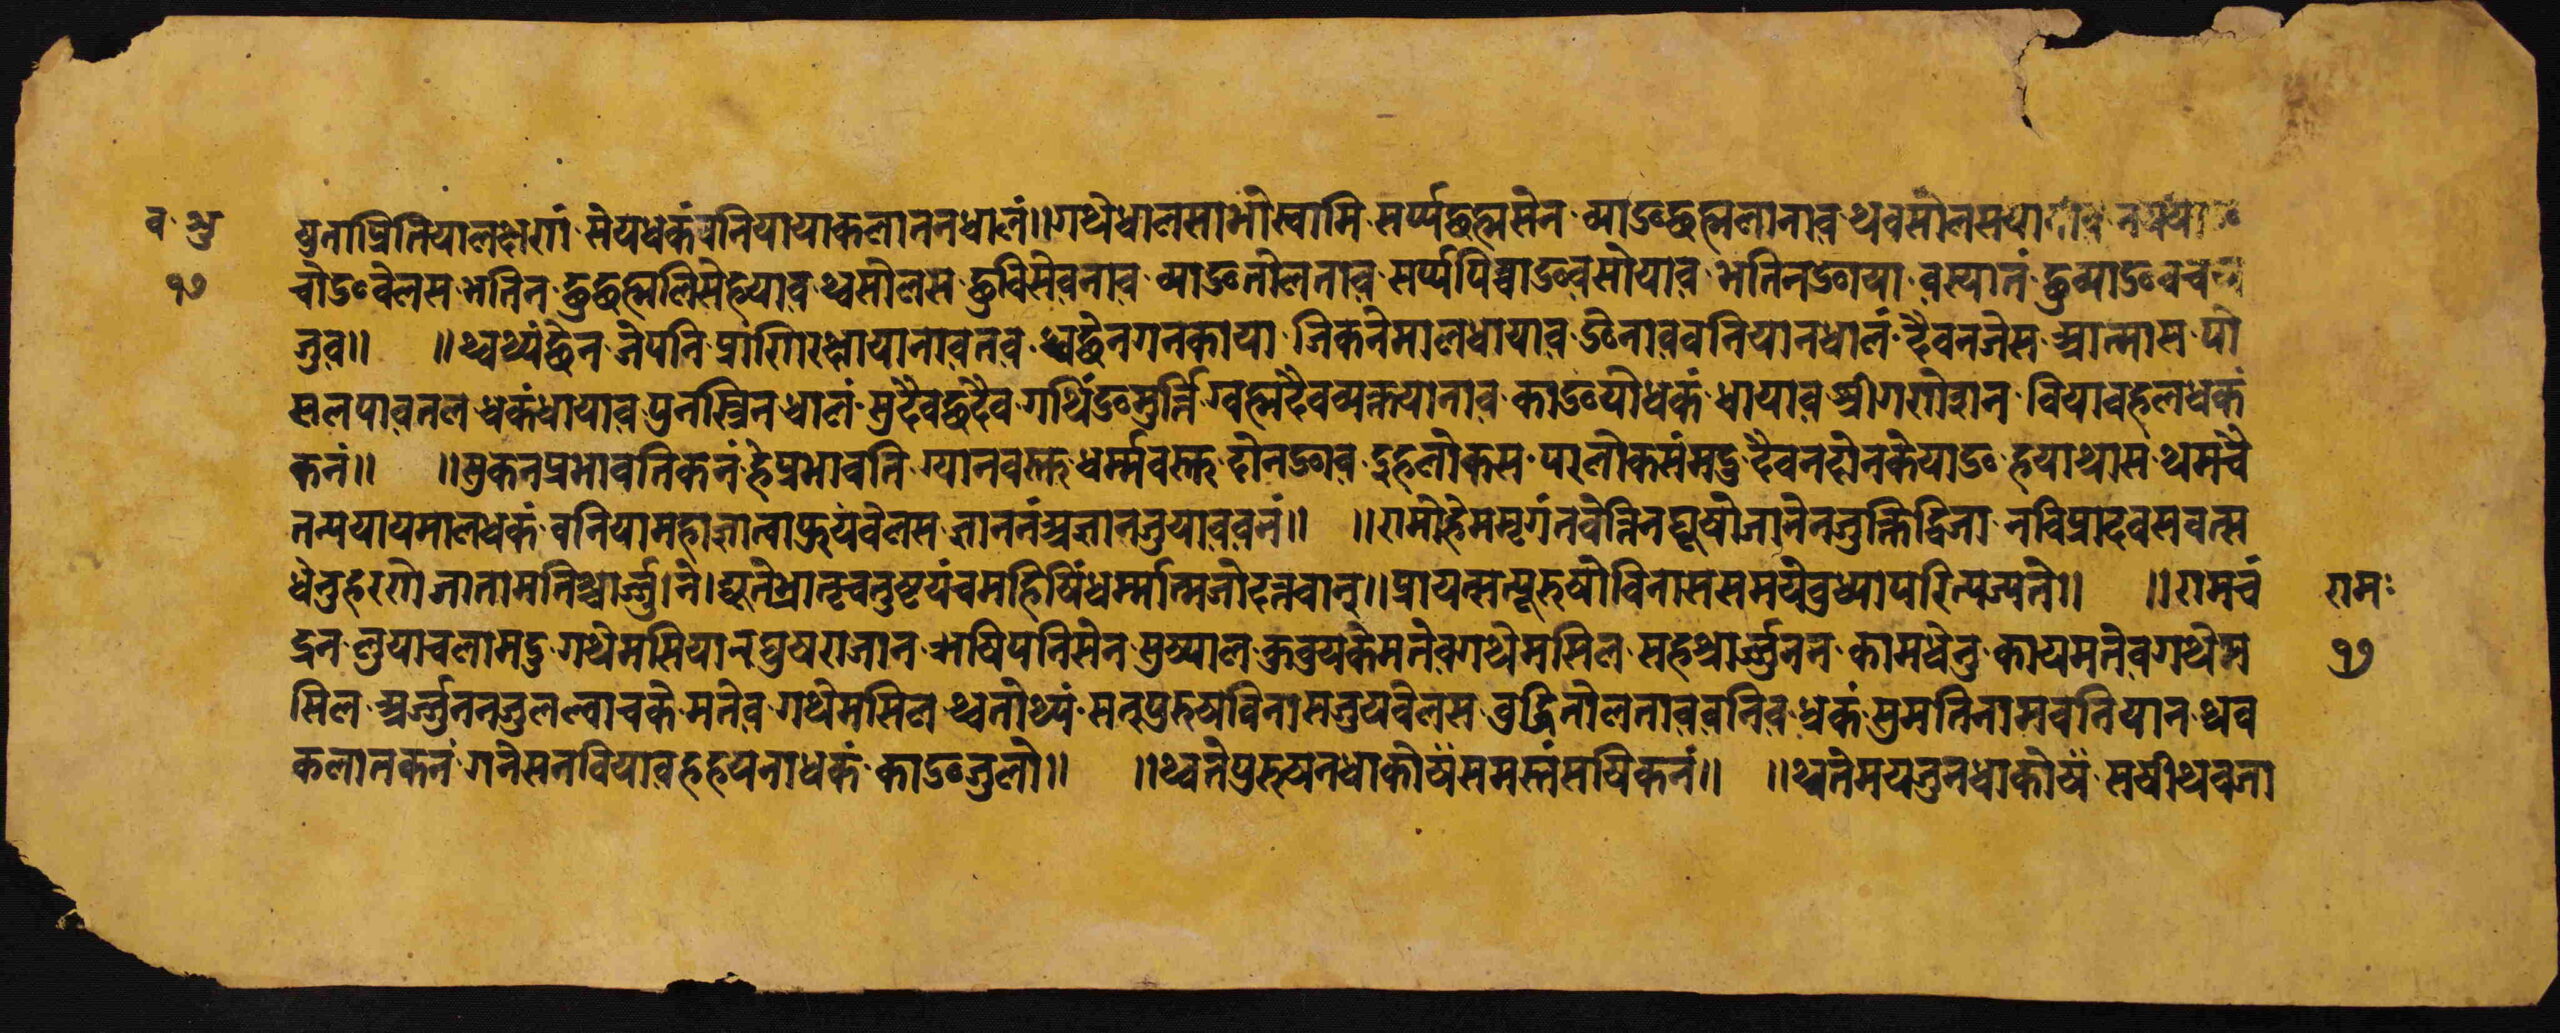 व शु
१७
युनाप्रितियालक्षेणां सेयधकंवनियायाकलाननधालं॥गथेधालसाभोस्वामि सर्प्पछह्मसेन ब्याङछह्मलानाव थवसोलसया
चोङवेलस भतिन छुछह्मलिसेहयाव थ्वसोलस छुविसेवनाव ब्याङतोलनाव सर्प्पपिब्वाङवसोयाव भतिनङाया वस्यानं छुब्याङवच
जुव॥ ॥थ्वथ्यं छेन जेपनि प्राणिरक्षायानावतव थ्वछेनगनकाया जिकनेमालधायाव ङेनाववनियानधालं दैवनजेस आत्मास पो
सलपावतल धकंधायाव पुनर्स्त्रिन धालं मुदैवछुदैव गथिंङमुर्त्ति ग्वह्मदैवव्यक्तयानाव काङयोधकं धायाव श्रीगणेशन वियावहलधकं
कनं॥ ॥सुकनप्रभावतिकनं हेप्रभावति ग्यानवस्त्र धर्म्मवस्त्र दोनङाव इहलोकस परलोकसंमदु दैवनदोनकेयाङ हयाथास थमंचे
तन्मयायमालधकं वनियामहाज्ञात्वाफ्रुयंवेलस ज्ञाननंअज्ञानजुयाववनं॥ ॥रामोहेममृगंनवेत्तिनघूषोजानेनजुक्तिद्विजा नविप्रादवसवत्स
धेनुहरणो जातामतिश्चार्ज्जुने।द्यूतेभ्रातृचतुष्टयंचमहिषिंधर्म्मात्मजोदत्तवान्॥प्रायत्सत्पूरुषोविनाससमयेवुध्यापरित्यज्यते॥ ॥रामचं
द्रन लुयाचलामदु गथेमसिया नघुषराजान भषिपनिसेन मुख्याल कुवुयकेमतेवगथेमसिल सहश्रार्ज्जुनन कामधेनु कायमतेवगथेम
सिल अर्ज्जुननजुलल्वाचके मतेव गथेमसिल थ्वतोथ्यं सत्पुरुषविनासजुयवेलस वुद्धितोलतावबनिव धकं सुमतिनामवनियान थव
कलातकनं गनेसनवियाव हहयनाधकं काङजुलो॥ ॥थ्वतेपुरुषनधाकोयं समस्तंसयिकनं॥ ॥थ्वतेमयजुनधाकोयं सषीथवजा
रामः
१७